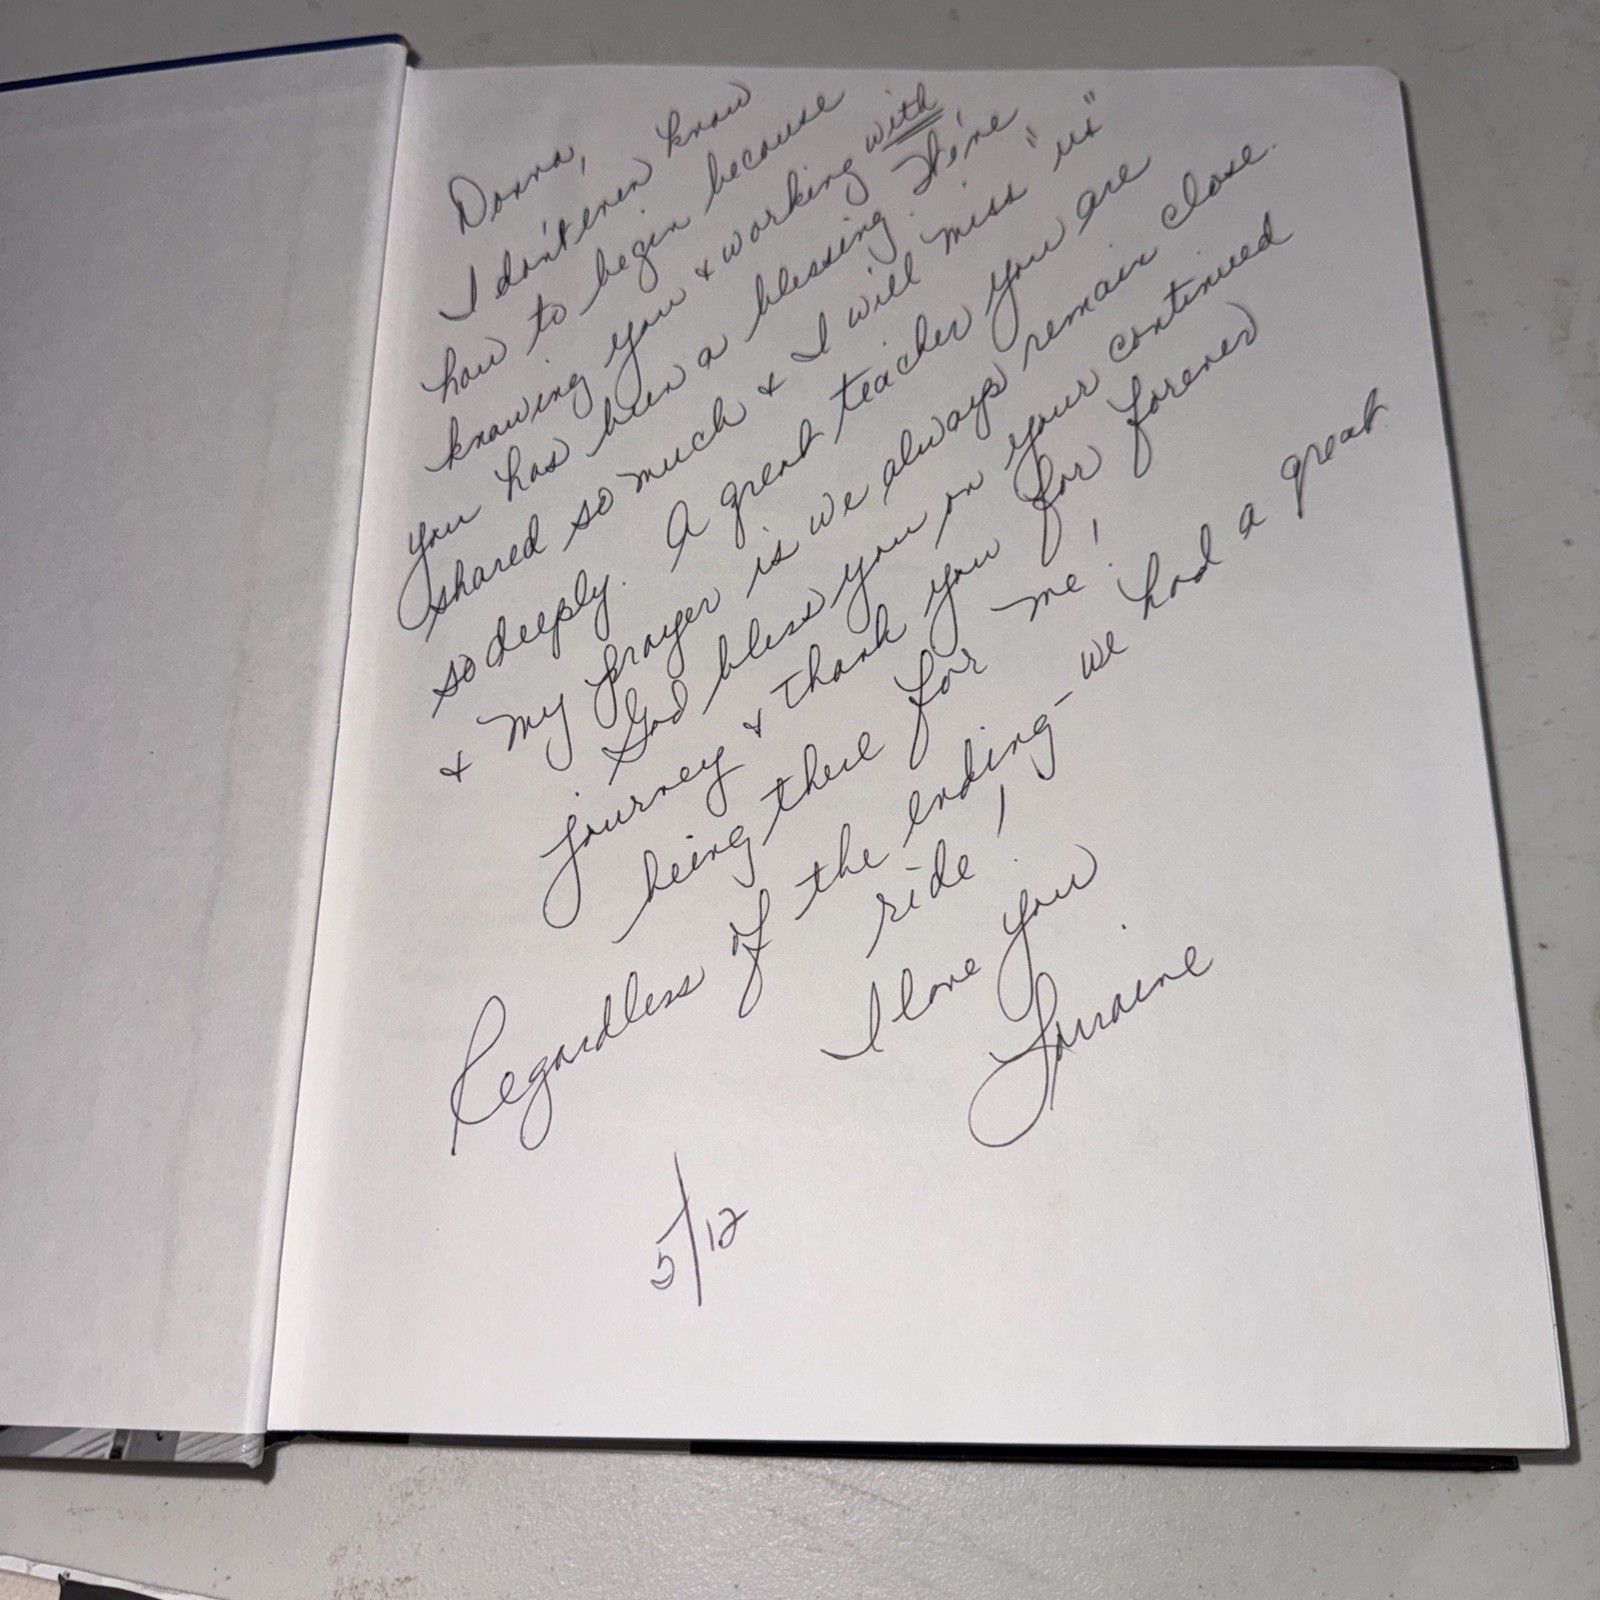 Donna,
I don't even know
how to begin because
knowing you & working with
you has been a blessing. We've
shared so much & I will miss "us"
so deeply. A great teacher you are
& my prayer is we always remain close.
God bless you on your continued
journey & thank you for forever
being there for me!
Regardless of the ending - we had a great
ride!
I love you
Lorraine
5/12